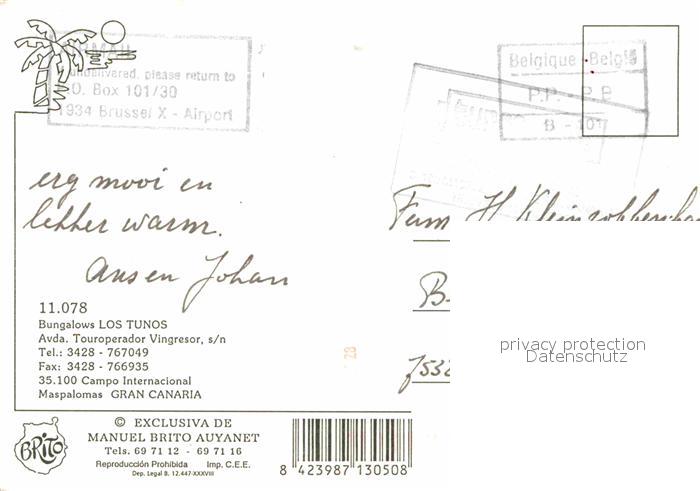 AIRMAIL
undelivered, please return to
P.O. Box 101/30
1934 Brussel X - Airport
Belgique - België
P.P. - P.P.
B - 101
erg mooi en
lekker warm.
Ans en Johan
Fam H
B
11.078
Bungalows LOS TUNOS
Avda. Touroperador Vingresor, s/n
Tel.: 3428 - 767049
Fax: 3428 - 766935
35.100 Campo Internacional
Maspalomas GRAN CANARIA
privacy protection
Datenschutz
BRITO
© EXCLUSIVA DE
MANUEL BRITO AUYANET
Tels. 69 71 12 - 69 71 16
Reproducción Prohibida Imp. C.E.E.
Dep. Legal B. 12.447-XXXVIII
8 423987 130508